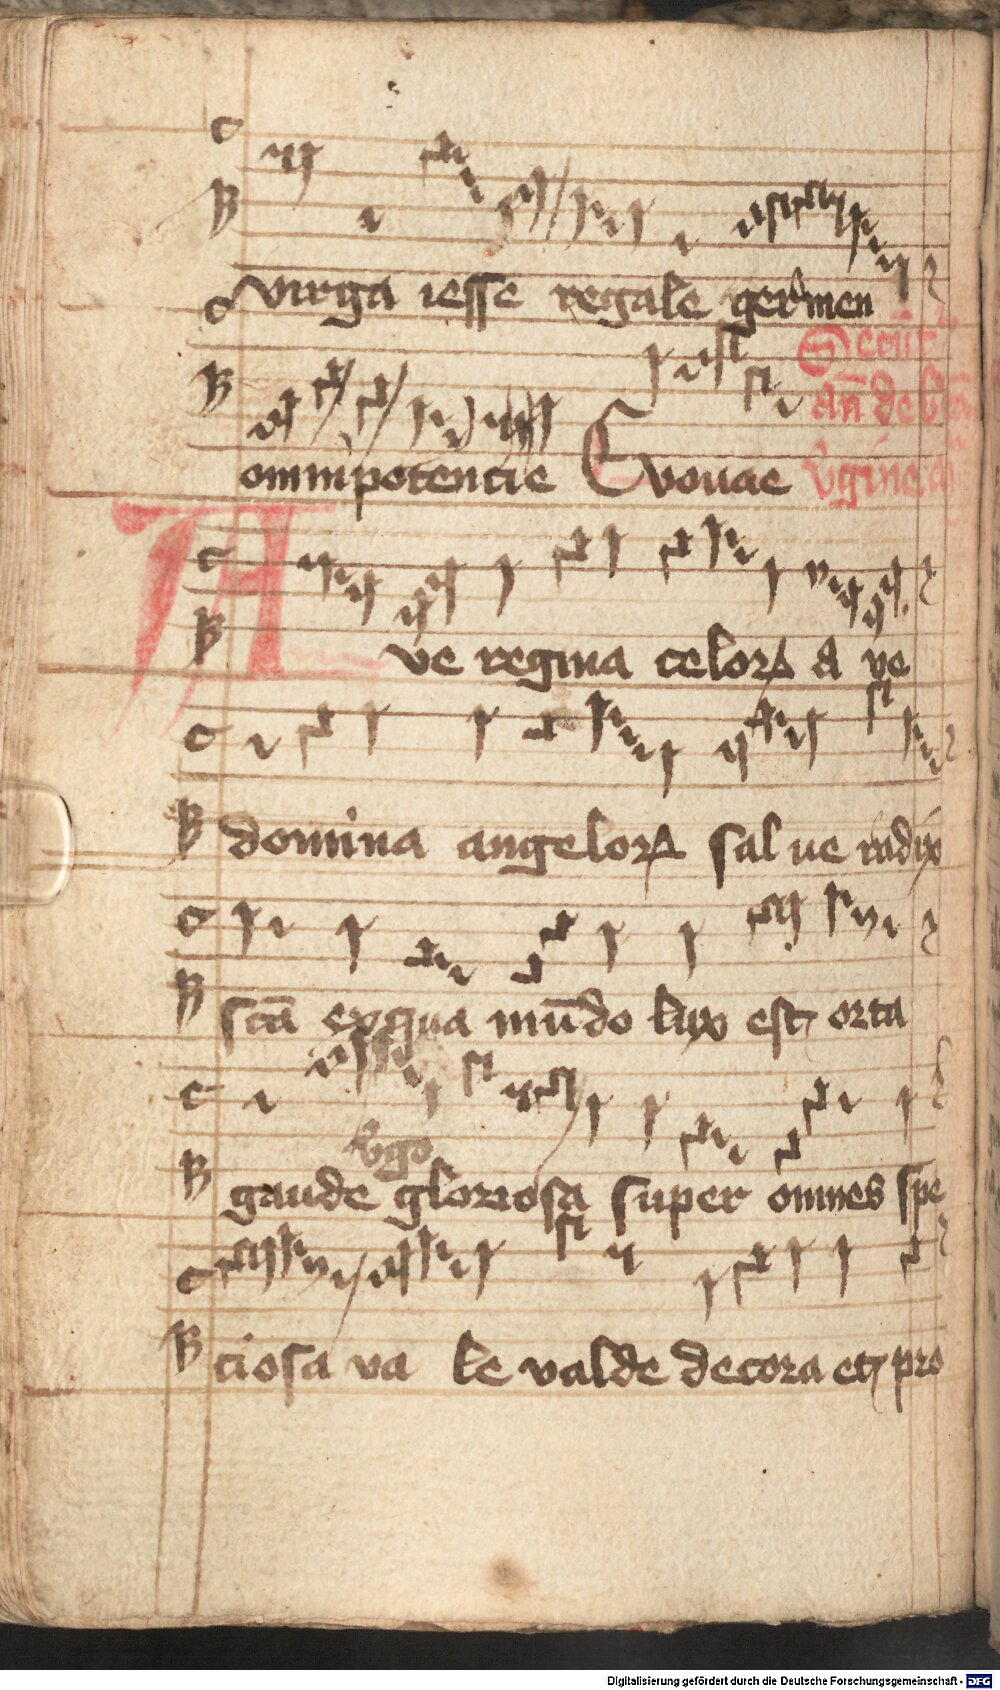 virga iesse regale germen
Secūr
omnipotentie Evovae
an̄ de b
v̄gine
Ave regina celorꝝ A ve
domina angelorꝝ salue radix
sctā exqua mūdo lux est orta
v̄go
gaude gloriosa super omnes spe
ciosa va le valde decora et pro
Digitalisierung gefördert durch die Deutsche Forschungsgemeinschaft - DFG